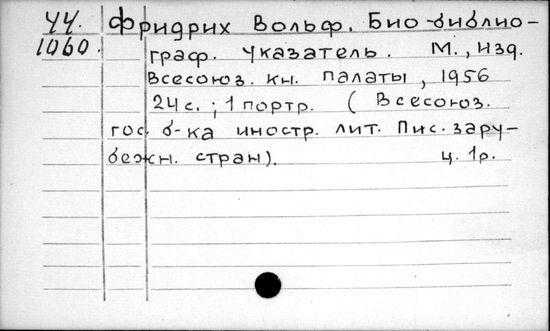 44. Фридрих Вольф. Био-библио-
1060. граф. указатель. М., Изд.
Всесоюз. кн. палаты, 1956
24с.; 1 портр. (Всесоюз.
гос. б-ка иностр. лит. Пис. зару-
бежн. стран). ц. 1р.